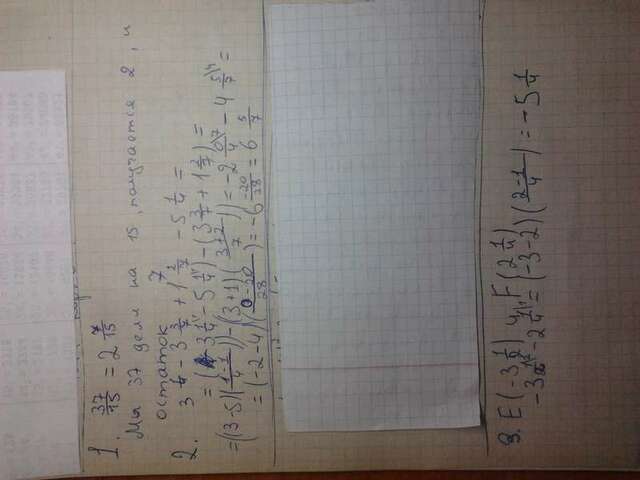 1. 37/15 = 2 7/15
Мы 37 дели на 15, получается 2, и
остаток 7
2. 3 1/4 - 3 3/7 + 1 2/7 - 5 1/4 =
= (3 1/4 - 5 1/4) - (3 3/7 + 1 2/7) =
=(3-5)(1-1/4)-(3+1)(3+2/7)) = -2 0/4 - 4 5/7 =
= (-2-4)(0-20/28) = -6 -20/28 = 6 5/7
3. E(-3 1/2) и F(2 1/4)
-3 1/2 - 2 1/4 = (-3-2)(2-1/4) = -5 1/4